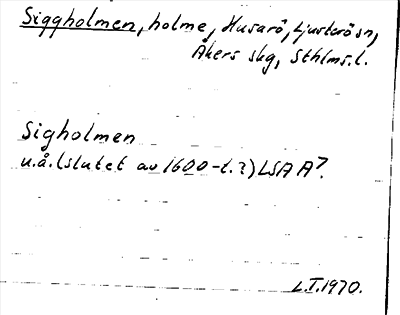 Siggholmen, holme, Husarö, Ljusterö sn,
Åkers skg, Sthlms. l.
Sigholmen
u.å. (slutet av 1600-t.?) LSA A⁷.
L.I.1970.